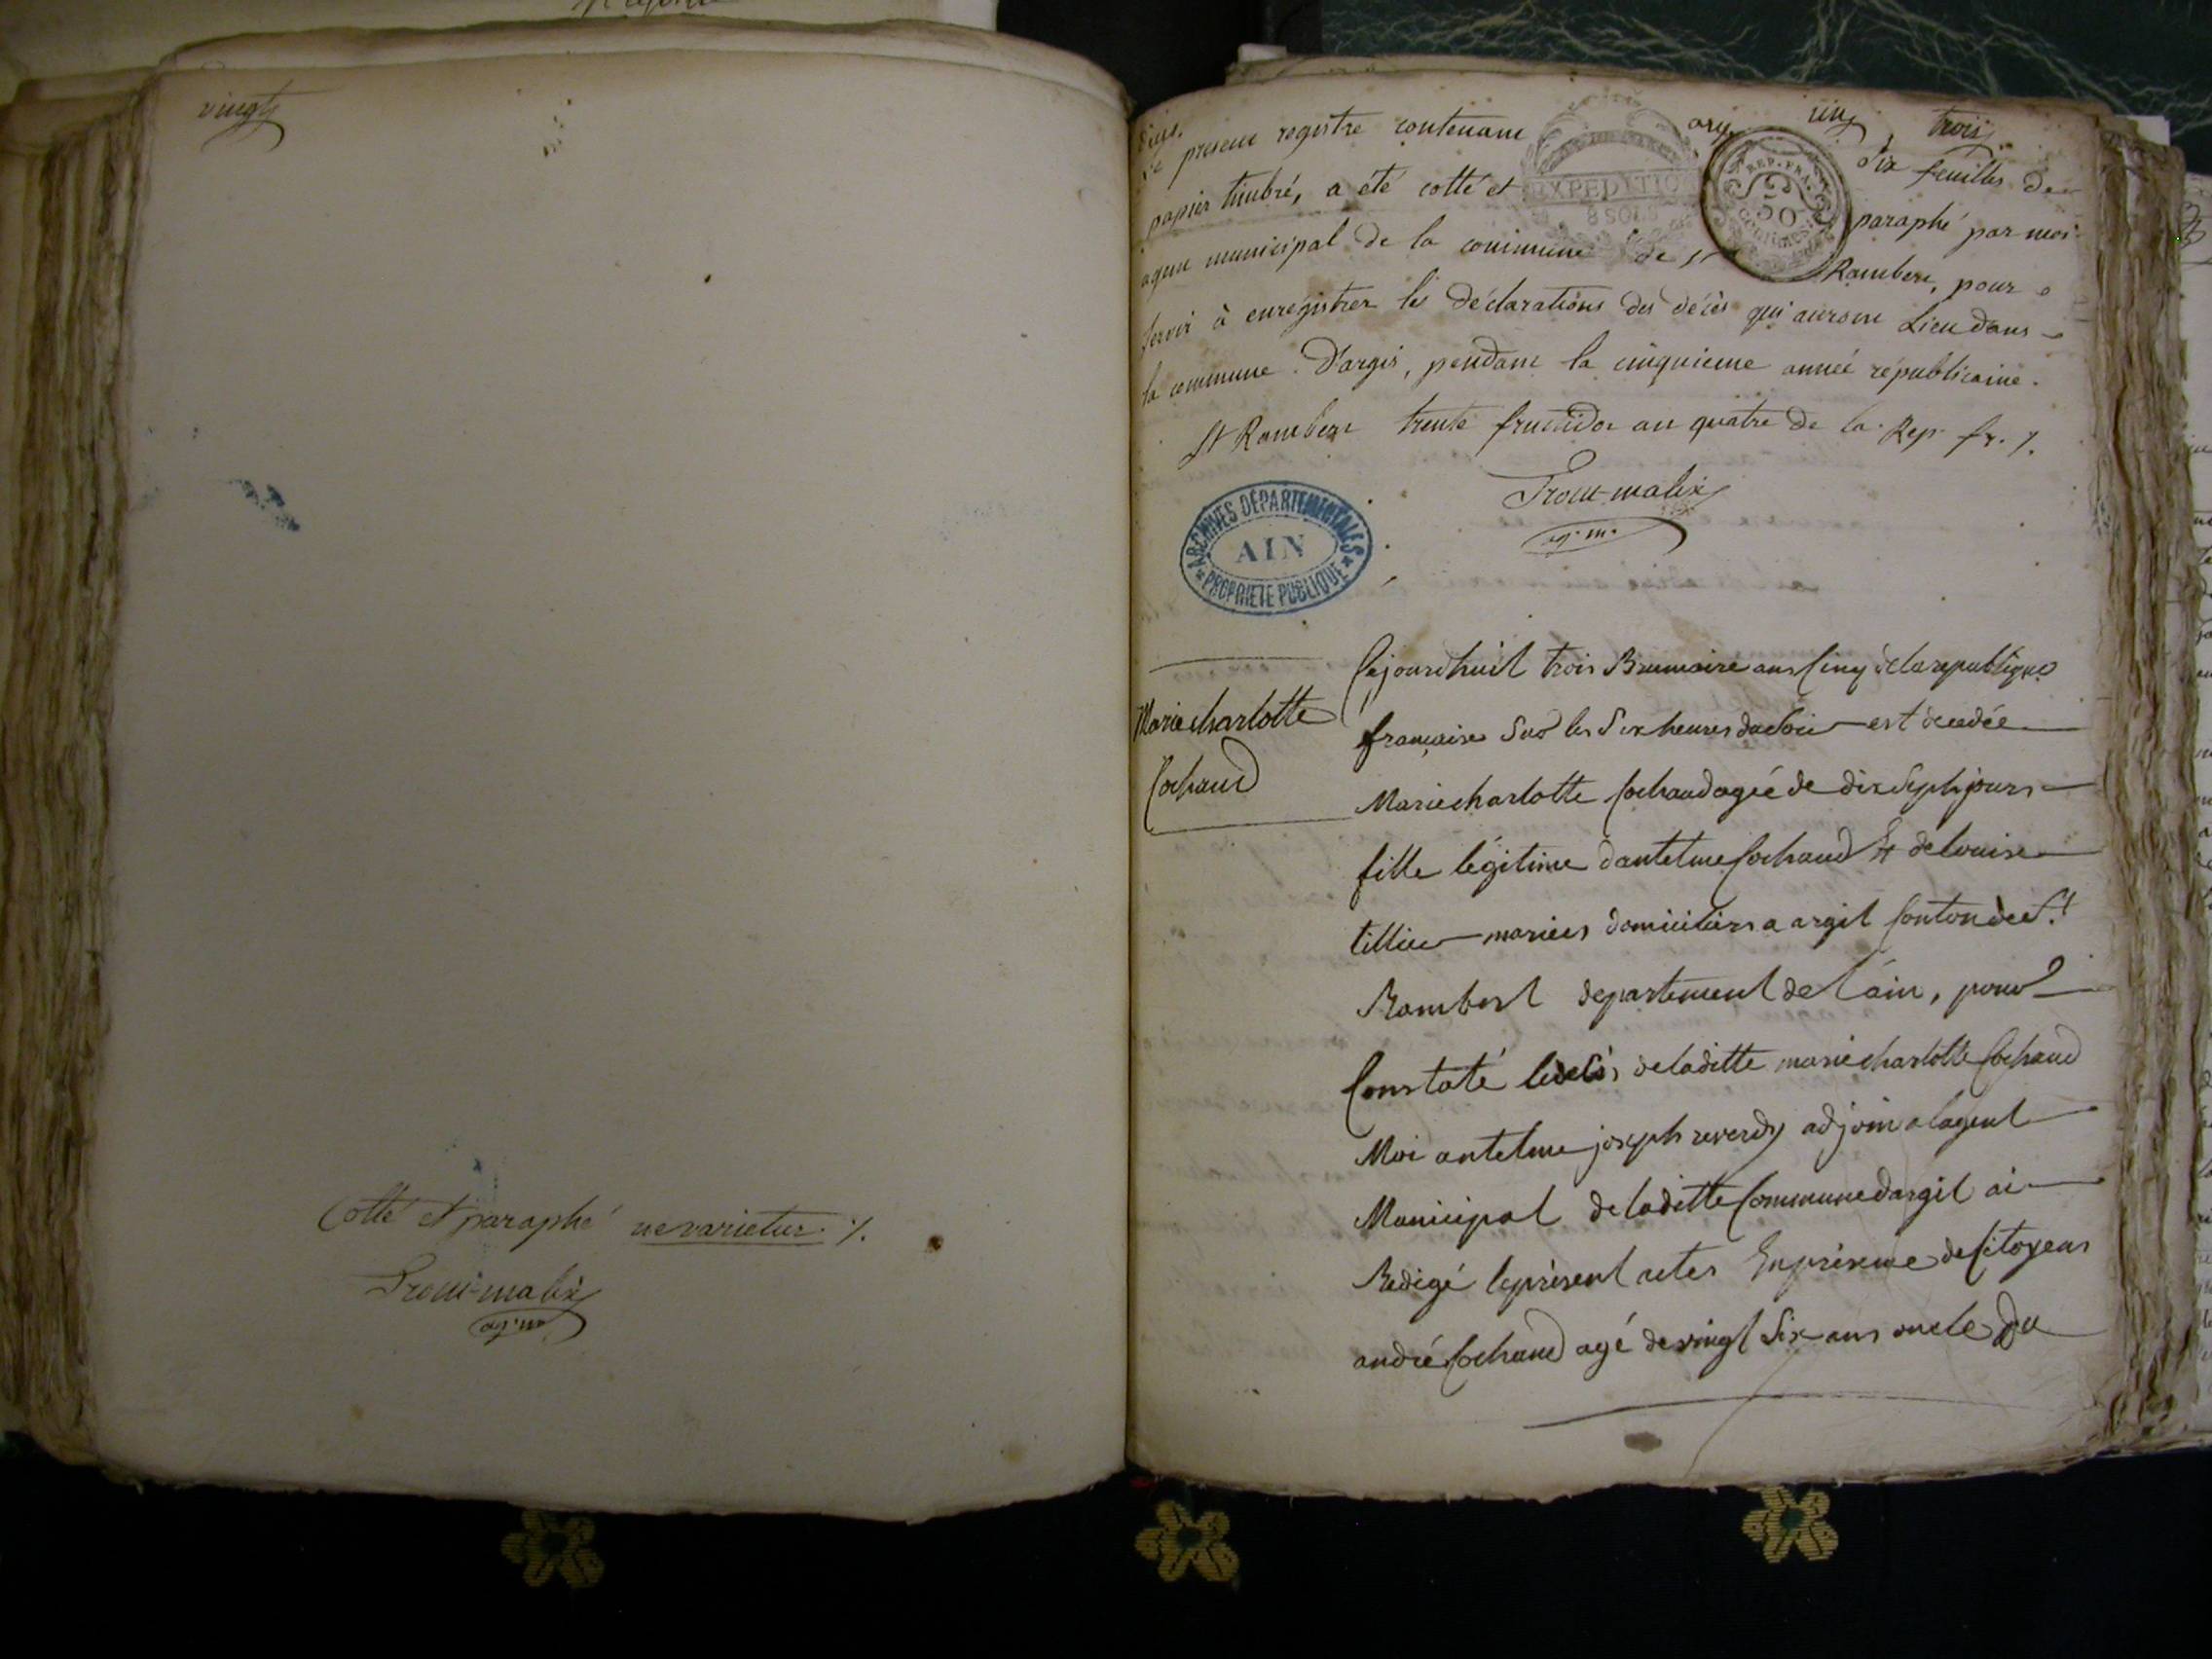 vingt
Cotté et paraphé ne varietur ./.
ag. m.
trois
Le present registre contenant dix feuilles de
papier timbré, a été cotté et paraphé par moi
agent municipal de la commune de St Rambert, pour
servir à enregistrer les déclarations des décès qui auront Lieu dans
la commune D'argis, pendant la cinquieme année républicaine.
St Rambert trente fructidor an quatre de la Rep. fr. ./.
ag. m.
EXPEDITIO
8 SOLS
REP. FRA.
50
CENTIMES
ARCHIVES DÉPARTEMENTALES
AIN
* PROPRIETE PUBLIQUE *
Marie charlotte
Cochaud
Cejourdhuil trois Brumaire ans Cinq dela republique
française Sur les Six heures du Soir est décédée
Marie charlotte Cochaud agée de dix Sept jours
fille légitime dantelme Cochaud Et de louise
tillier mariés domiciliers a argil Conton de St
Rambert departement de l'ain, pour
Constaté le décès deladitte marie charlotte Cochaud
Moi antelme joseph reverdy adjoin a lagent
Municipal de laditte Commune dargil ai
Redigé le présent actes En présence de Citoyens
andré Cochaud agé de vingt Six ans oncle Du